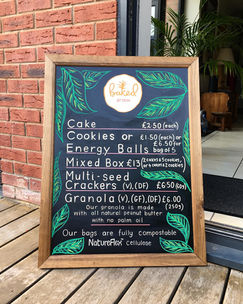 baked
Cake £2.50 (each)
Cookies or £1.50 (each) or
Energy Balls £6.50 for bag of 5
Mixed Box £13 (2 cakes & 5 cookies, or 4 cakes & 2 cookies)
Multi-seed
Crackers (V),(DF) £6.50 (bag)
Granola (V),(GF),(DF) £6.00
Our granola is made (250g)
with all natural peanut butter
with no palm oil
Our bags are fully compostable
NatureFlex cellulose